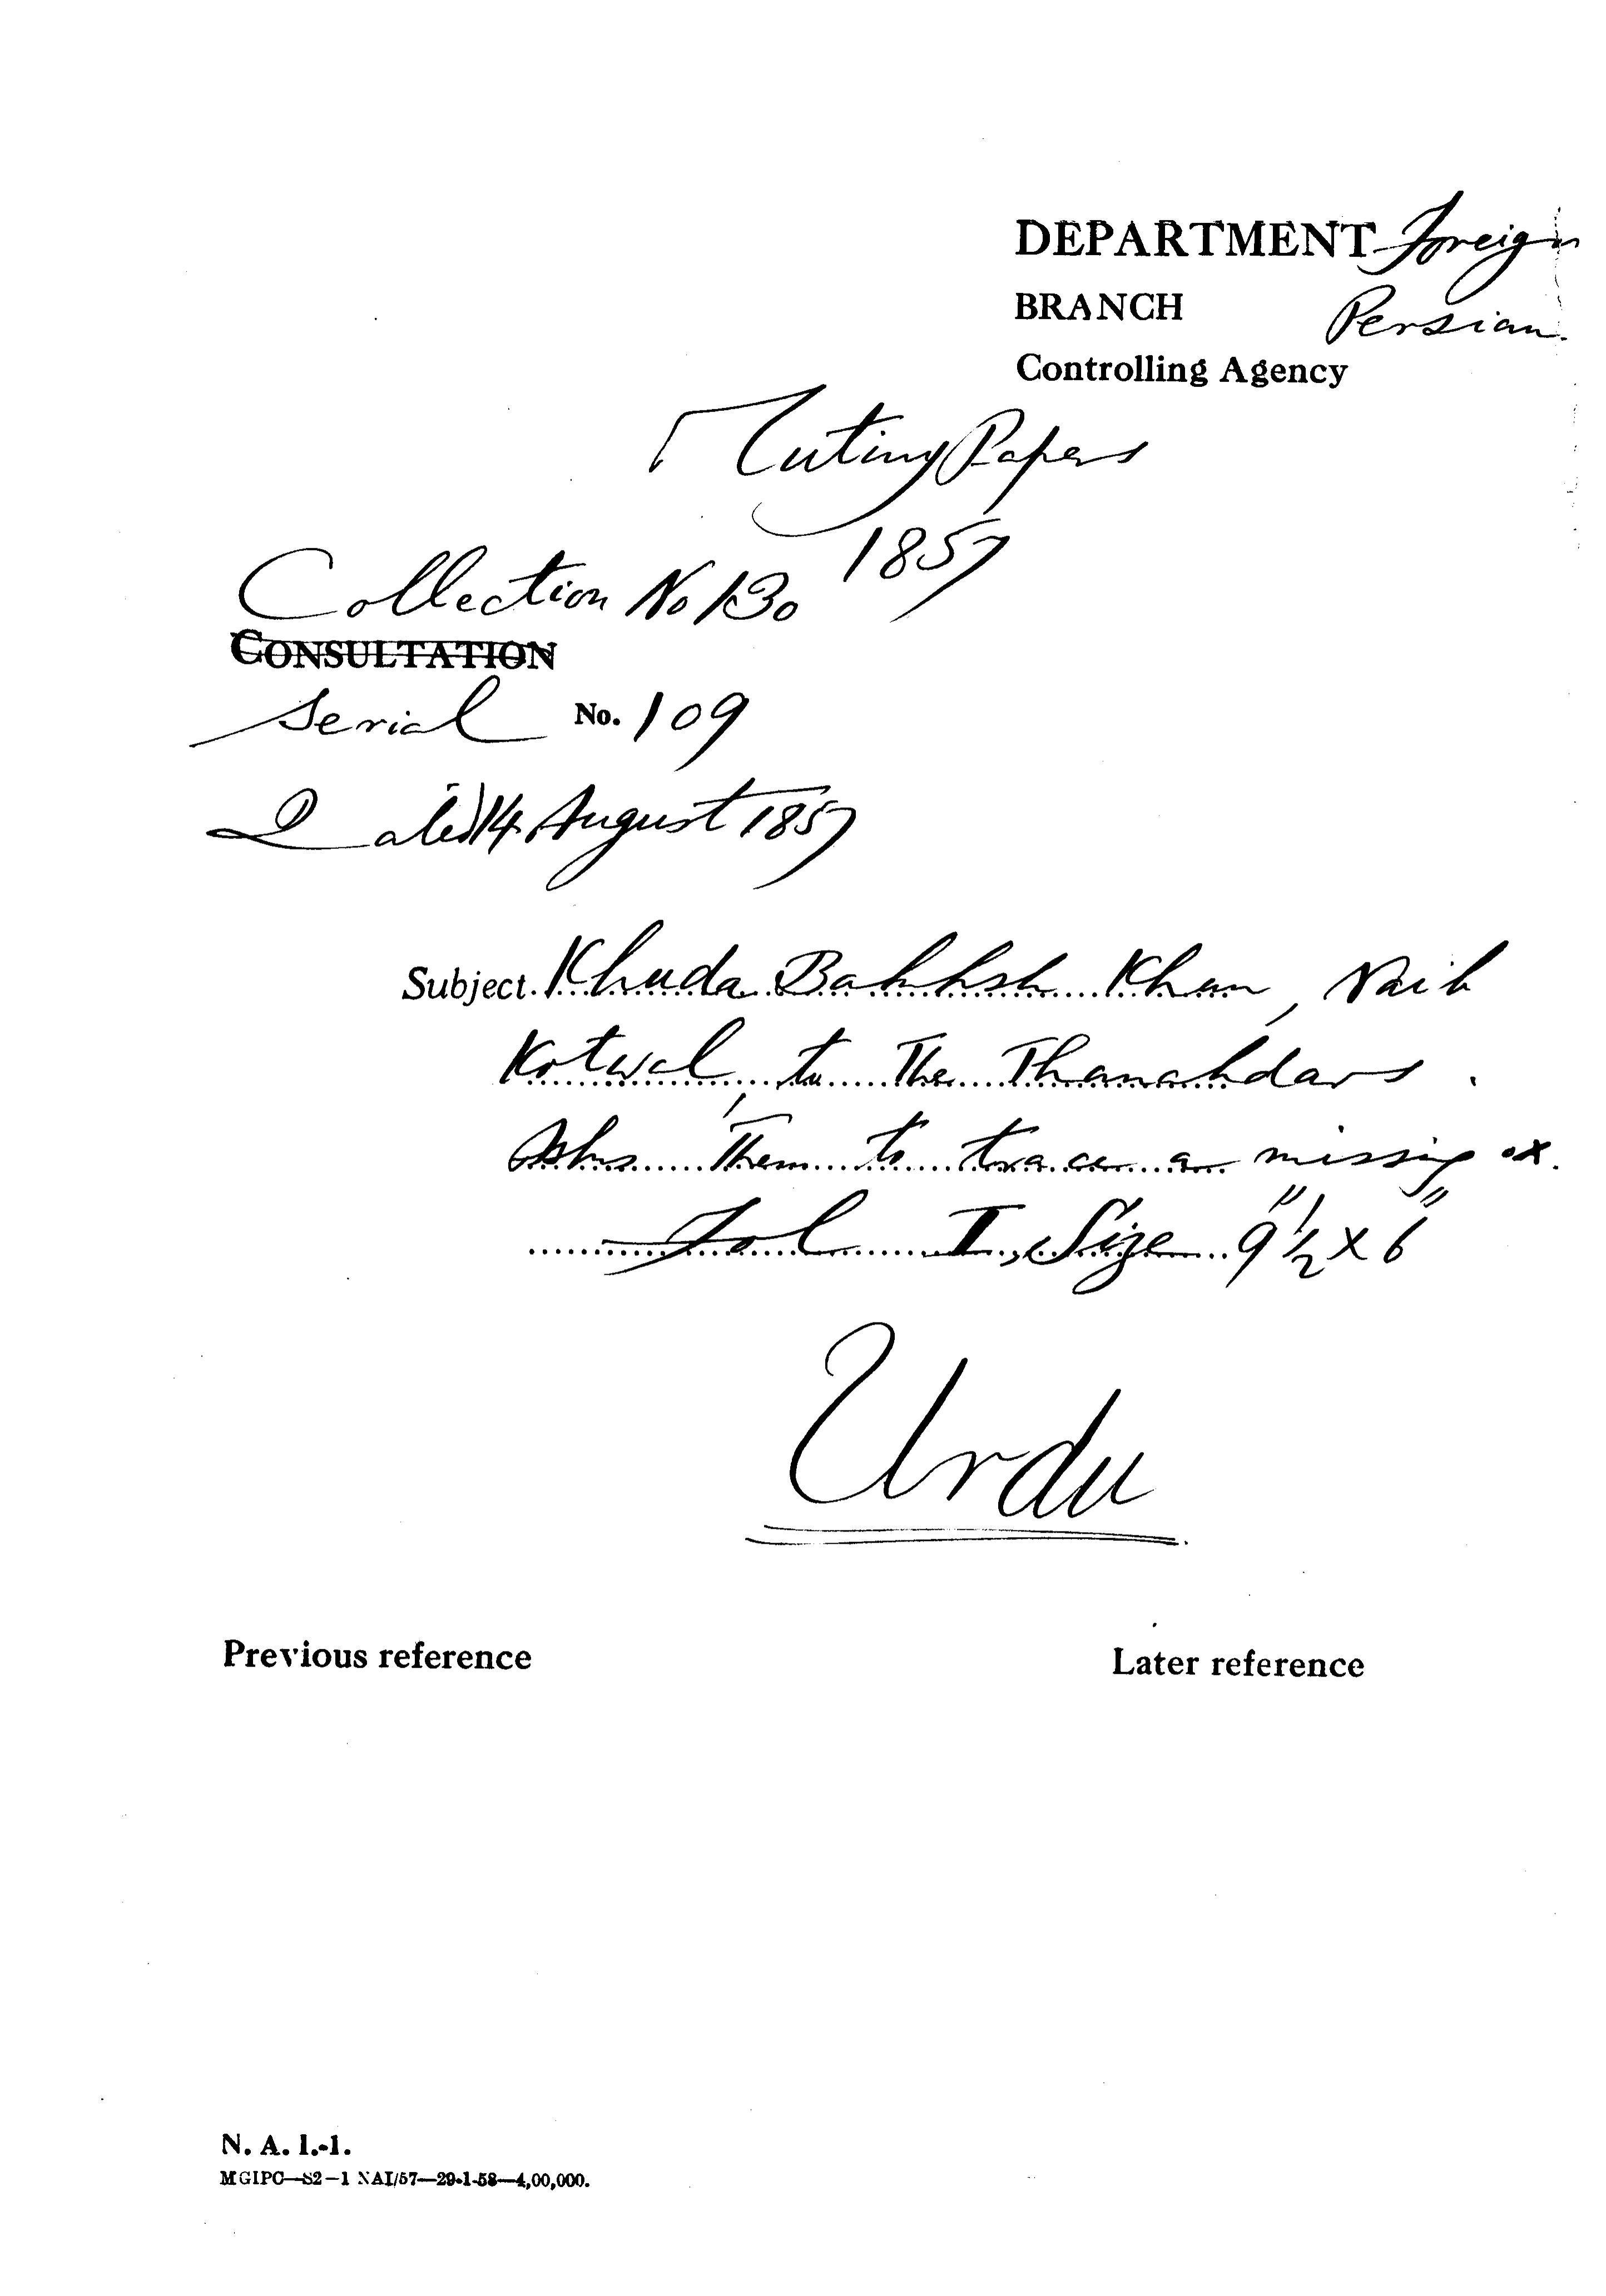 DEPARTMENT Foreign
BRANCH Persian.
Controlling Agency
Mutiny Papers
1857
Collection No 130
CONSULTATION
Serial No. 109
Dated 14 August 1857
Subject. Khuda Bakhsh Khan, Naib
Kotwal, to The Thanahdars.
Asks Them to trace a missing ox.
Fol I, Size 9½" X 6"
Urdu
Previous reference
Later reference
N. A. I.-1.
MGIPC—S2—1 NAI/57—29-1-58—4,00,000.